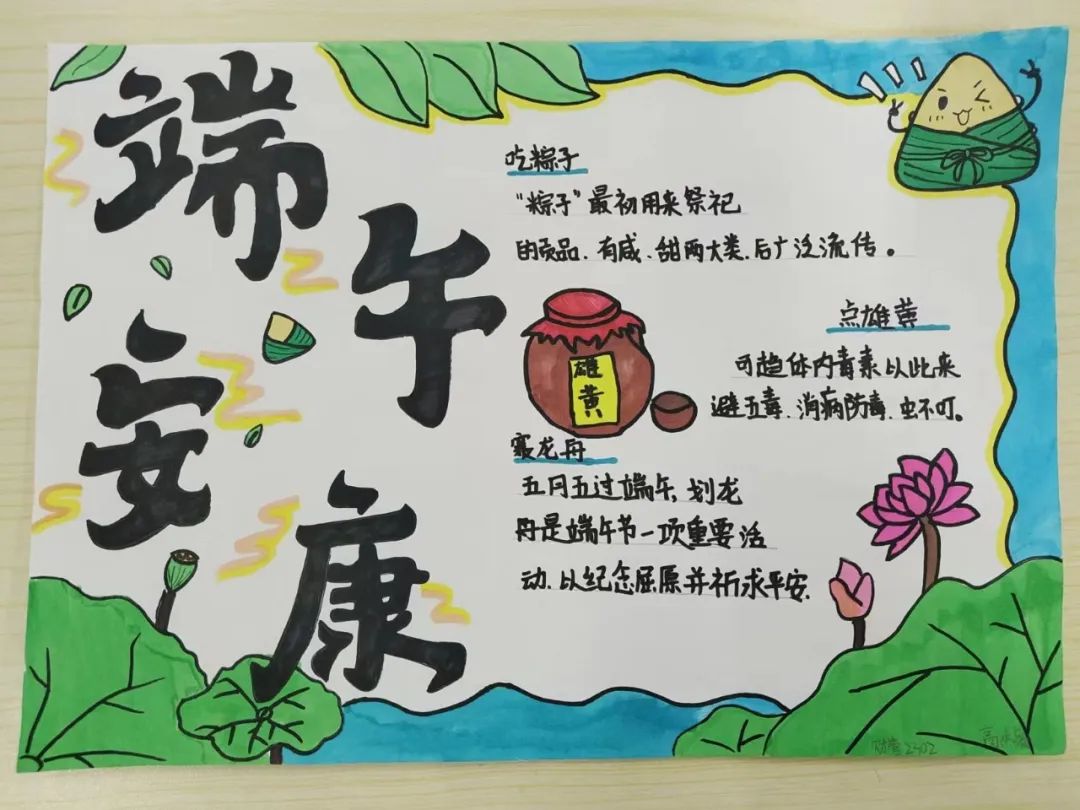 端午
安康
吃粽子
“粽子”最初用来祭祀
的贡品、有咸、甜两大类、后广泛流传。
点雄黄
雄
黄
可趋体内毒素以此来
避五毒、消病防毒、虫不叮。
赛龙舟
五月五过端午,划龙
舟是端午节一项重要活
动、以纪念屈原并祈求平安.
财管2302